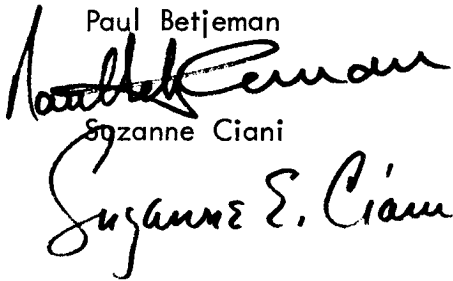 Paul Betjeman
Paul Betjeman
Suzanne Ciani
Suzanne E. Ciani